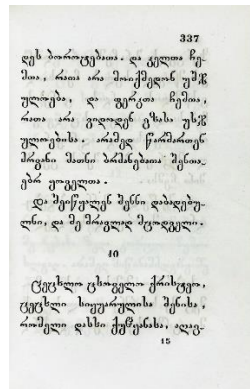 337
დეს ბოროტებათა. და ჴელთა ჩე-
მთა, რათა არა მოიქმედონ უშჯ
ულოება, და ფერჴთა ჩემთა,
რათა არა ვიდოდენ გზასა უსჯ
ულოებისა. არამედ წარმართენ
მრგანი მათნი ბრძანებათა შენთა-
ებრ ყოველთა.
და შეიწყალენ შესნი დაბადებუ-
ლნი, და მე მრავლად მცოდველი.
10
ცეცხლო ცხოველო ქრისტეო,
ცეცხლი სიყუარულისა შენისა,
რომელი დასსი ქუჱყანასა, აღაგ-
15